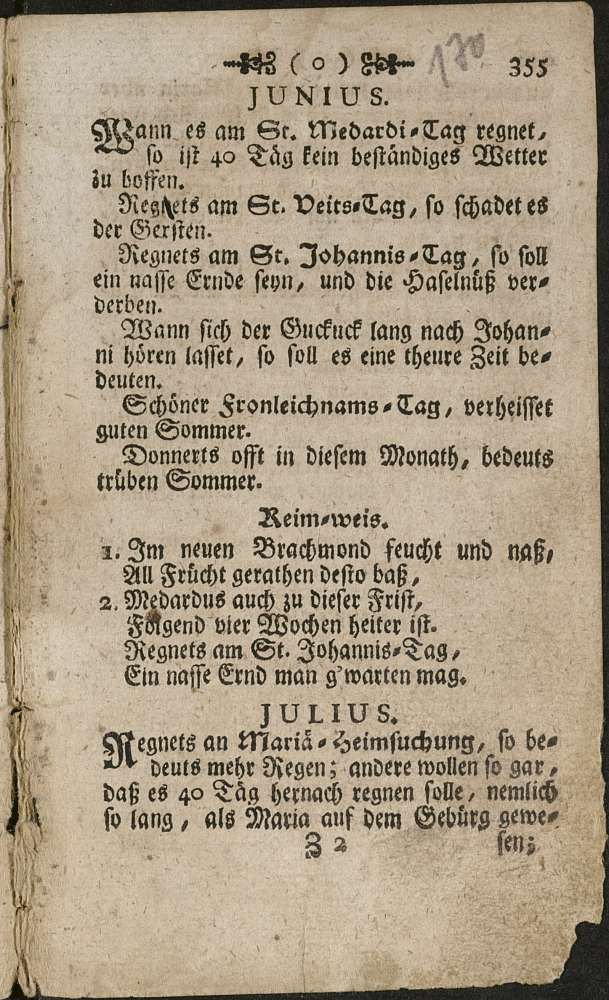 ( o ) 130 355
JUNIUS.
Wann es am St. Medardi-Tag regnet,
so ist 40 Täg kein beständiges Wetter
zu hoffen.
Regnets am St. Veits-Tag, so schadet es
der Gersten.
Regnets am St. Johannis-Tag, so soll
ein nasse Ernde seyn, und die Haselnüß ver-
derben.
Wann sich der Guckuck lang nach Johan-
ni hören lasset, so soll es eine theure Zeit be-
deuten.
Schöner Fronleichnams-Tag, verheisset
guten Sommer.
Donnerts offt in diesem Monath, bedeuts
trüben Sommer.
Reim-weis.
1. Im neuen Brachmond feucht und naß,
All Frücht gerathen desto baß,
2. Medardus auch zu dieser Frist,
Folgend vier Wochen heiter ist.
Regnets am St. Johannis-Tag,
Ein nasse Ernd man g'warten mag.
JULIUS.
Regnets an Mariä-Heimsuchung, so be-
deuts mehr Regen; andere wollen so gar,
daß es 40 Täg hernach regnen solle, nemlich
so lang, als Maria auf dem Gebürg gewe-
Z 2 sen;